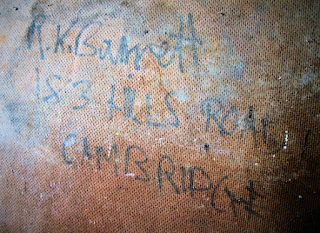 R.K. Barrett
153 HILLS ROAD
CAMBRIDGE